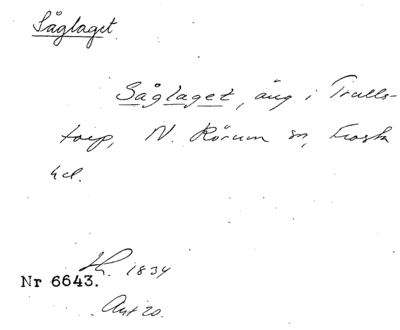 Såglaget
Såglaget, äng i Trulls-
torp, N. Rörum sn, Frosta
hd.
H. 1834
Nr 6643.
Akt 20.